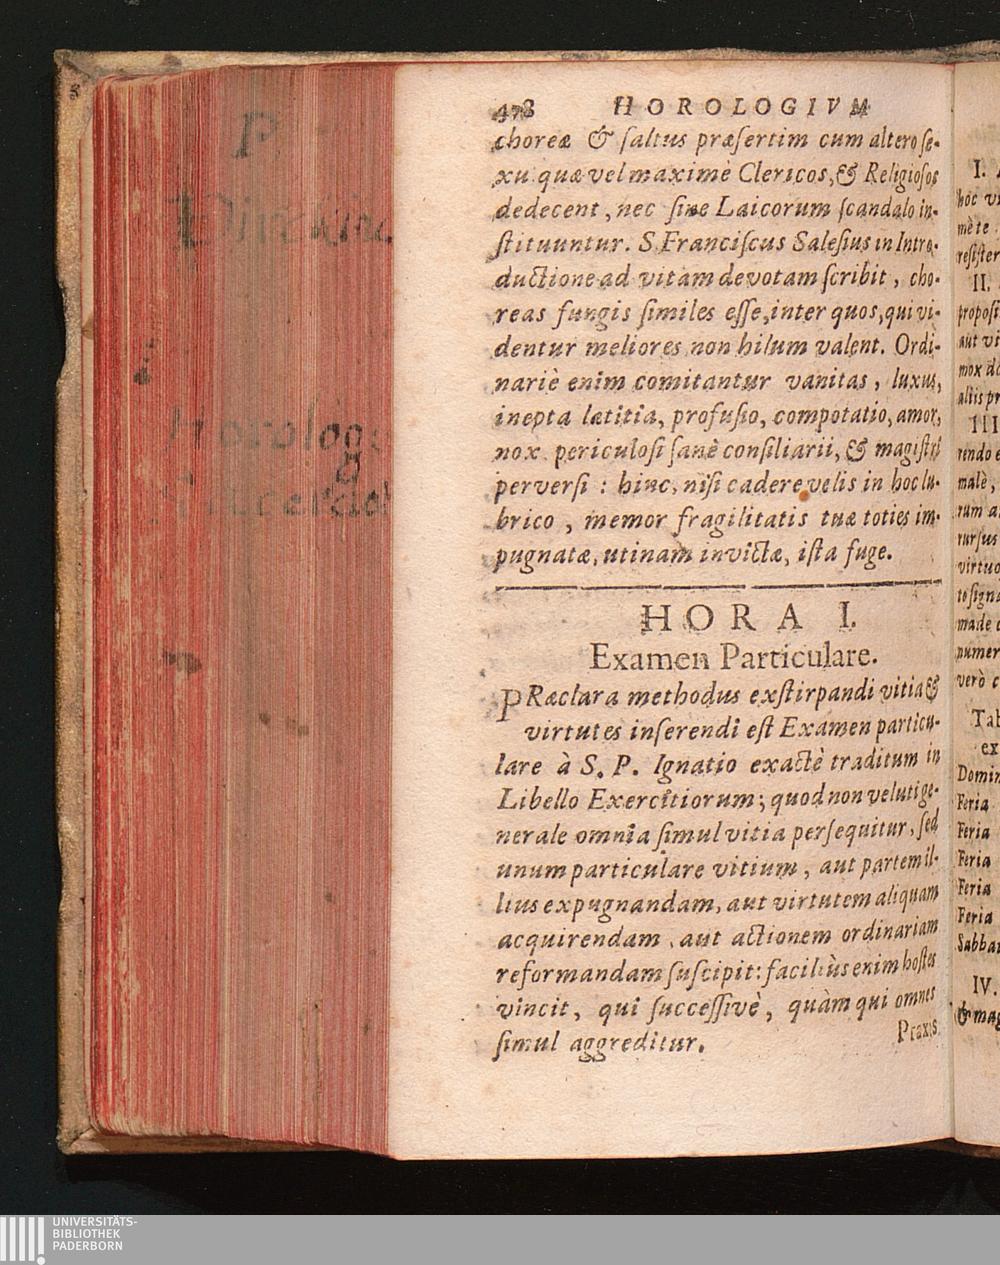 478 HOROLOGIVM
choreæ & ſaltus præſertim cum altero ſe-
xu: quæ vel maximè Clericos, & Religioſos
dedecent, nec ſine Laicorum ſcandalo in-
ſtituuntur. S. Franciſcus Saleſius in Intro-
ductione ad vitam devotam ſcribit, cho-
reas fungis ſimiles eſſe, inter quos, qui vi-
dentur meliores non hilum valent. Ordi-
nariè enim comitantur vanitas, luxus,
inepta lætitia, profuſio, compotatio, amor,
nox periculoſi ſanè conſiliarii, & magiſtri
perverſi: hinc, niſi cadere velis in hoc lu-
brico, memor fragilitatis tuæ toties im-
pugnatæ, utinam invictæ, iſta fuge.
HORA I.
Examen Particulare.
PRæclara methodus exſtirpandi vitia &
virtutes inſerendi eſt Examen particu-
lare à S. P. Ignatio exactè traditum in
Libello Exercitiorum; quod non veluti ge-
nerale omnia ſimul vitia perſequitur, ſed
unum particulare vitium, aut partem il-
lius expugnandam, aut virtutem aliquam
acquirendam, aut actionem ordinariam
reformandam ſuſcipit: faciliùs enim hoſtes
vincit, qui ſucceſſivè, quàm qui omnes
ſimul aggreditur.
Praxis
I.
hoc
II.
III
malè,
Tab
ex
Feria
Feria
Feria
Feria
Feria
IV.
UNIVERSITÄTS-
BIBLIOTHEK
PADERBORN